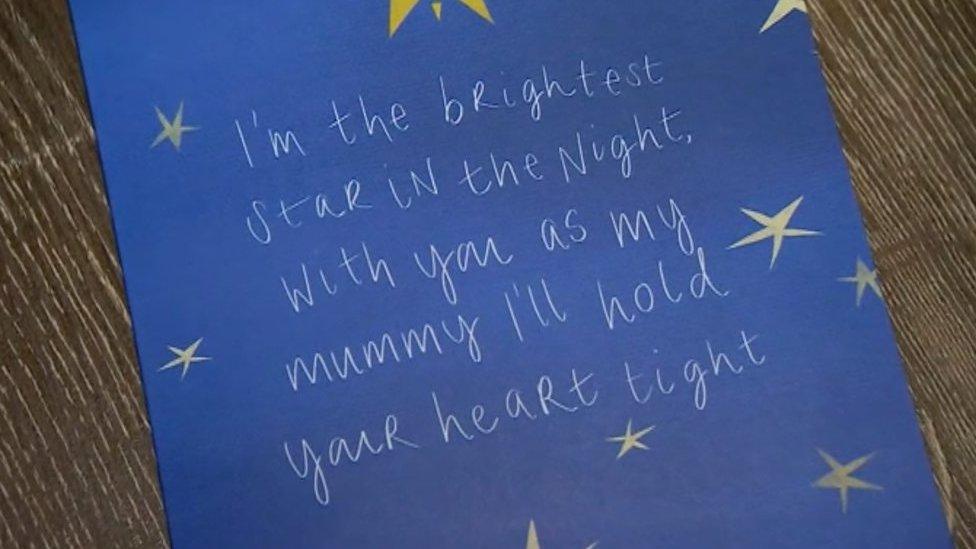 I'm the brightest
star in the night,
with you as my
mummy I'll hold
your heart tight